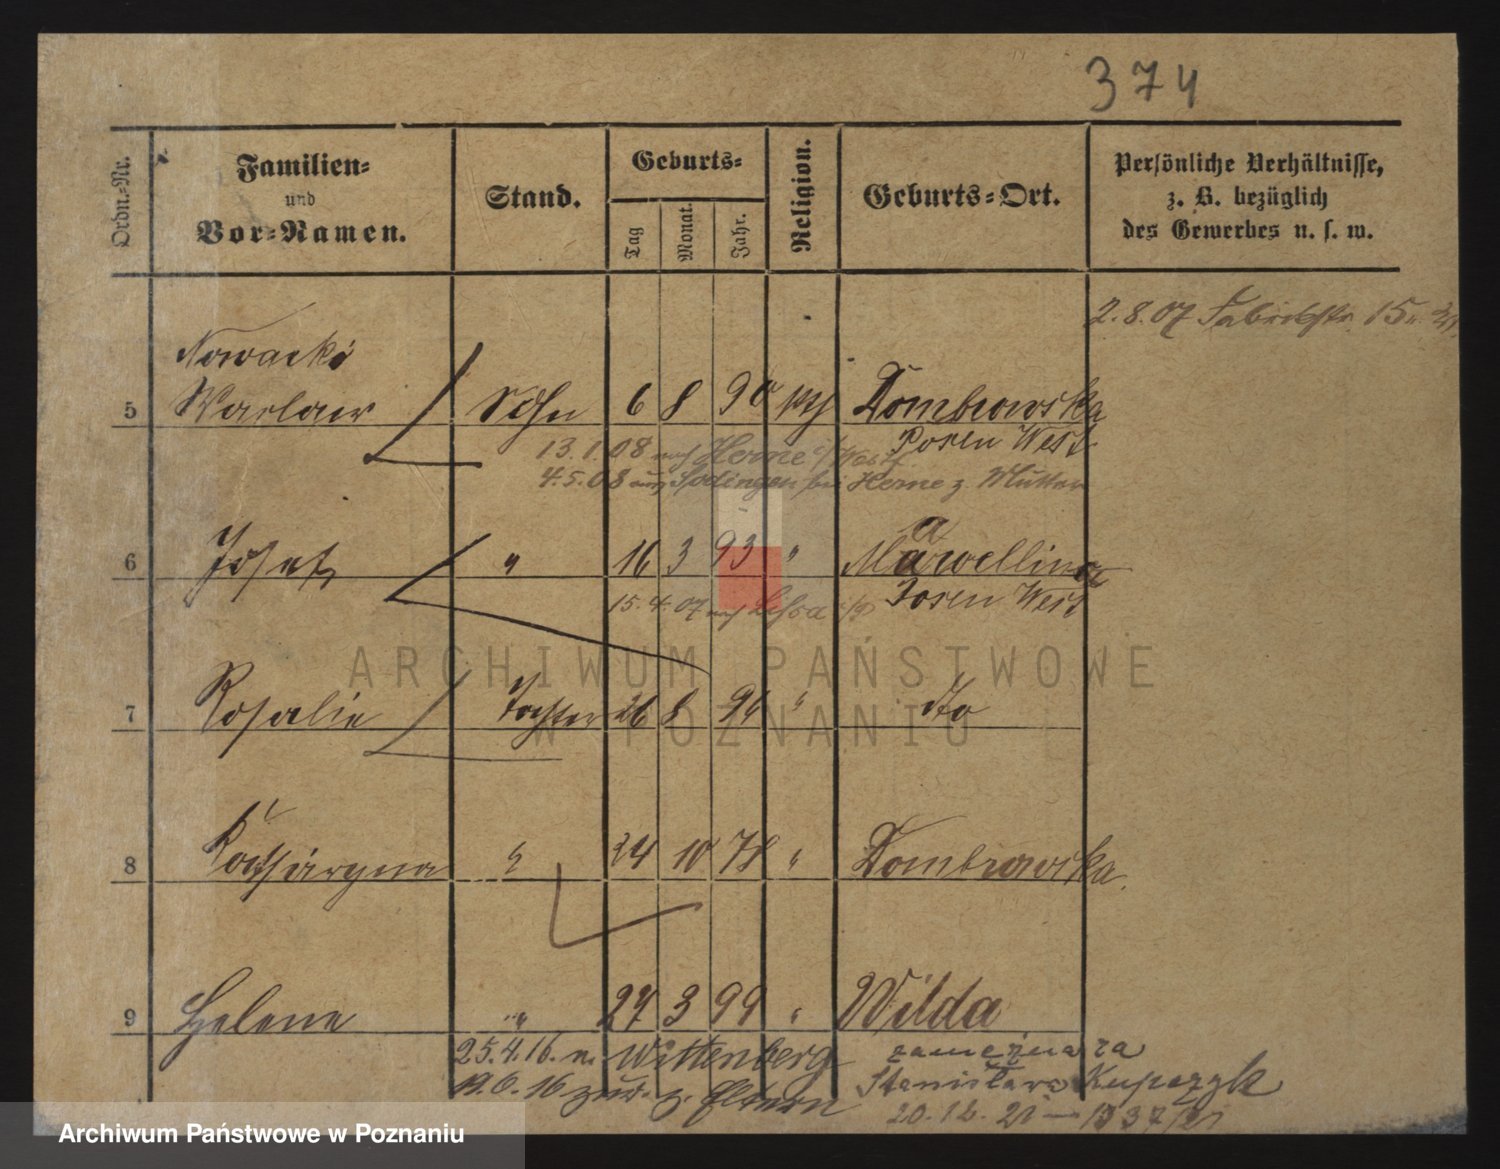 374
Ordn.-Nr.
Familien-
und
Vor-Namen.
Stand.
Geburts-
Tag
Monat.
Jahr.
Religion.
Geburts-Ort.
Persönliche Verhältnisse,
z. B. bezüglich
des Gewerbes u. s. w.
2.8.07 Fabrikstr. 15
Nowacki
5 Waclaw Sohn 6 8 90 kth Dombrowska
Posen West
13.1.08 nach Herne i/Westf.
4.5.08 aus Sodingen bei Herne z. Mutter
a
6 Josef " 16 3 93 " Marcellino
Posen West
15.4.07 nach Lissa i/P
ARCHIWUM PAŃSTWOWE
W POZNANIU
7 Rosalie Tochter 26 8 96 " do
8 Katharyna " 24 10 78 " Dombrowska.
9 Helene " 27 3 99 " Wilda
25.4.16. n. Wittenberg zamężna za
6.16 zur. z. Eltern Stanisława Kupczyk
20.12.21
Archiwum Państwowe w Poznaniu